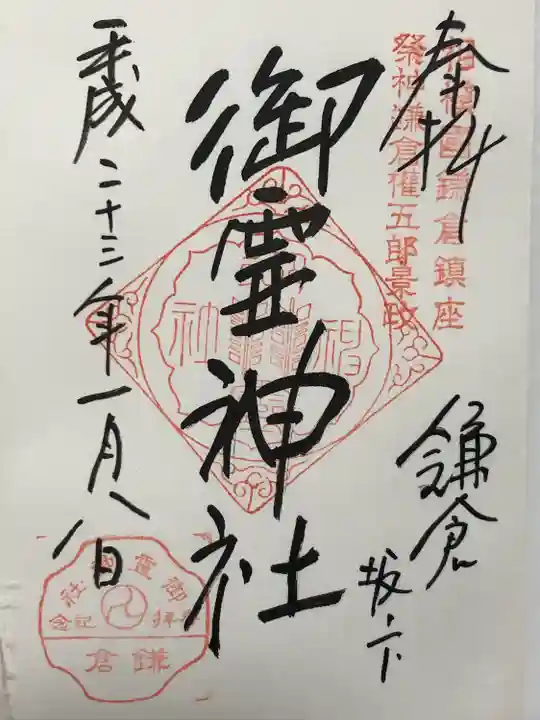 奉拝
相模國鎌倉鎮座
祭神鎌倉権五郎景政
鎌倉
坂ノ下
御霊神社
平成二十三年一月八日
御霊神社
参拝記念
鎌倉